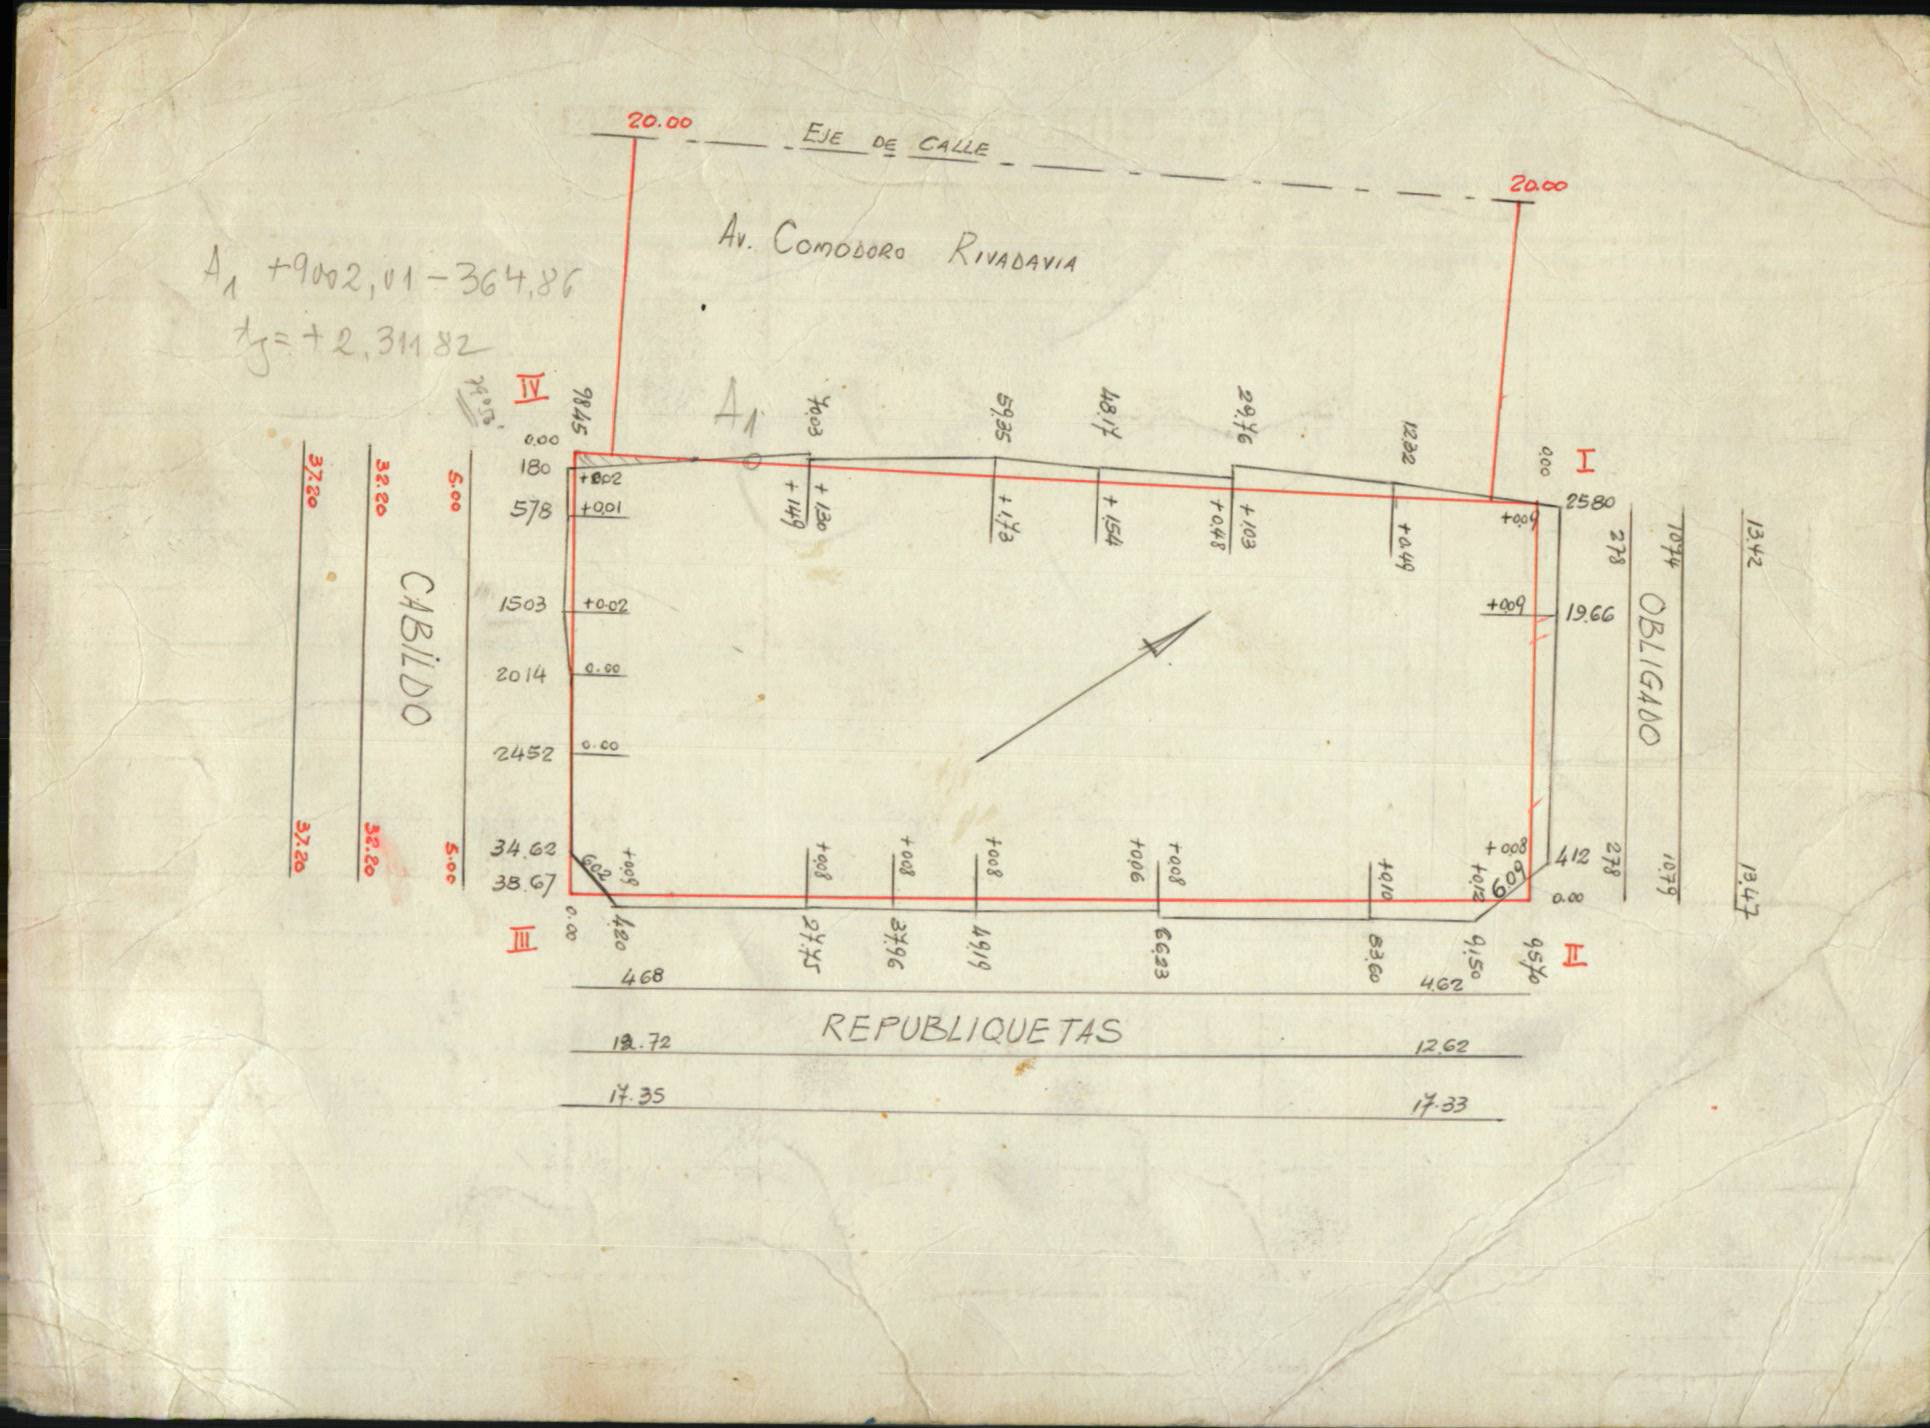 20.00
EJE DE CALLE
20.00
Av. COMODORO RIVADAVIA
A1 +9002,01-364,86
tg=+2,31182
IV
9845
A1
70,03
59,35
48,17
29,76
12,202
0,00
I
0.00
180
578
1503
2014
2452
34.62
38.67
+0.02
+0,01
+0.02
0.00
0.00
+1,49
+1,30
+1,73
+1,54
+0,48
+1,03
+0,49
+0,09
+009
2580
19.66
412
0.00
37.20
32.20
5.00
CABILDO
37.20
32.20
5.00
278
1074
13.42
OBLIGADO
278
10,79
13.47
602
+009
+008
+008
+008
+0,06
+0,08
+0,10
+0,12
+0,08
609
III
0.00
4,20
27,75
37,96
49,19
66,23
83,60
91,50
95,70
II
468
4.62
REPUBLIQUETAS
12.72
12.62
17.35
17.33